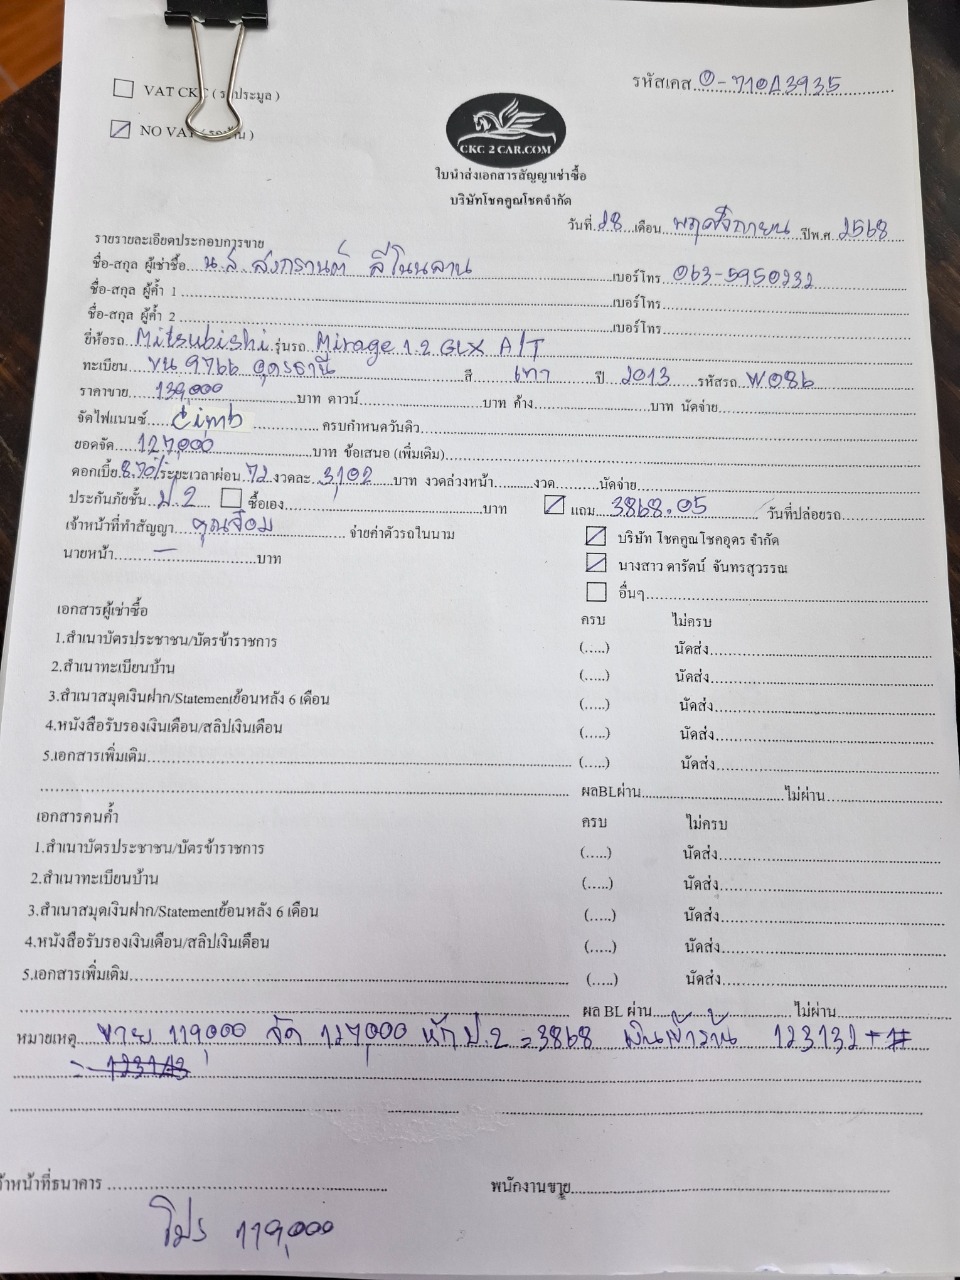 รหัสเคส 0-710A3935
☐ VAT CKC ( รถประมูล )
☑ NO VAT
CKC 2 CAR.COM
ใบนำส่งเอกสารสัญญาเช่าซื้อ
บริษัทโชคคูณโชคจำกัด
วันที่ 28 เดือน พฤศจิกายน ปีพ.ศ. 2568
รายรายละเอียดประกอบการขาย
ชื่อ-สกุล ผู้เช่าซื้อ น.ส สงกรานต์ สีโนนลาน เบอร์โทร 063-5950232
ชื่อ-สกุล ผู้ค้ำ 1 เบอร์โทร
ชื่อ-สกุล ผู้ค้ำ 2 เบอร์โทร
ยี่ห้อรถ Mitsubishi รุ่นรถ Mirage 1.2 GLX A/T
ทะเบียน ขน 9766 อุดรธานี สี เทา ปี 2013 รหัสรถ W086
ราคาขาย 139,000 บาท ดาวน์ บาท ค้าง บาท นัดจ่าย
จัดไฟแนนซ์ Cimb ครบกำหนดวันคิว
ยอดจัด 127,000 บาท ข้อเสนอ (เพิ่มเติม)
ดอกเบี้ย 8.70% ระยะเวลาผ่อน 72 งวดละ 3,102 บาท งวดล่วงหน้า งวด นัดจ่าย
ประกันภัยชั้น ป.2 ☐ ซื้อเอง บาท ☑ แถม 3868.05 วันที่ปล่อยรถ
เจ้าหน้าที่ทำสัญญา คุณจ๊อม จ่ายค่าตัวรถในนาม ☑ บริษัท โชคคูณโชคอุดร จำกัด
นายหน้า - บาท ☑ นางสาว ดารัตน์ จันทรสุวรรณ
☐ อื่นๆ
เอกสารผู้เช่าซื้อ ครบ ไม่ครบ
1.สำเนาบัตรประชาชน/บัตรข้าราชการ (.....) นัดส่ง
2.สำเนาทะเบียนบ้าน (.....) นัดส่ง
3.สำเนาสมุดเงินฝาก/Statementย้อนหลัง 6 เดือน (.....) นัดส่ง
4.หนังสือรับรองเงินเดือน/สลิปเงินเดือน (.....) นัดส่ง
5.เอกสารเพิ่มเติม (.....) นัดส่ง
ผลBLผ่าน ไม่ผ่าน
เอกสารคนค้ำ ครบ ไม่ครบ
1.สำเนาบัตรประชาชน/บัตรข้าราชการ (.....) นัดส่ง
2.สำเนาทะเบียนบ้าน (.....) นัดส่ง
3.สำเนาสมุดเงินฝาก/Statementย้อนหลัง 6 เดือน (.....) นัดส่ง
4.หนังสือรับรองเงินเดือน/สลิปเงินเดือน (.....) นัดส่ง
5.เอกสารเพิ่มเติม (.....) นัดส่ง
ผล BL ผ่าน ไม่ผ่าน
หมายเหตุ ขาย 119,000 จัด 127,000 หัก ป.2 = 3868 เงินเข้าร้าน 123132 +#
เจ้าหน้าที่ธนาคาร พนักงานขาย
โปร 119,000